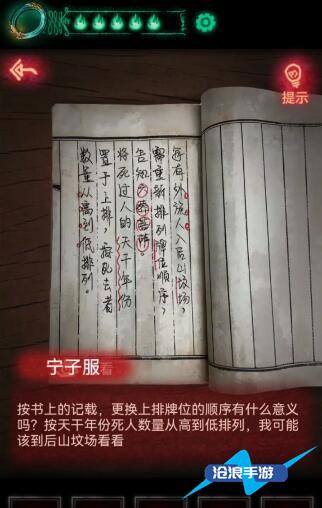 提示
每有外族人入后山坟场，
需重新排列牌位顺序，
告知
将死过人的天干年份
置于上排，按死去者
数量从高到低排列。
宁子服
按书上的记载，更换上排牌位的顺序有什么意义
吗？按天干年份死人数量从高到低排列，我可能
该到后山坟场看看
沧浪手游